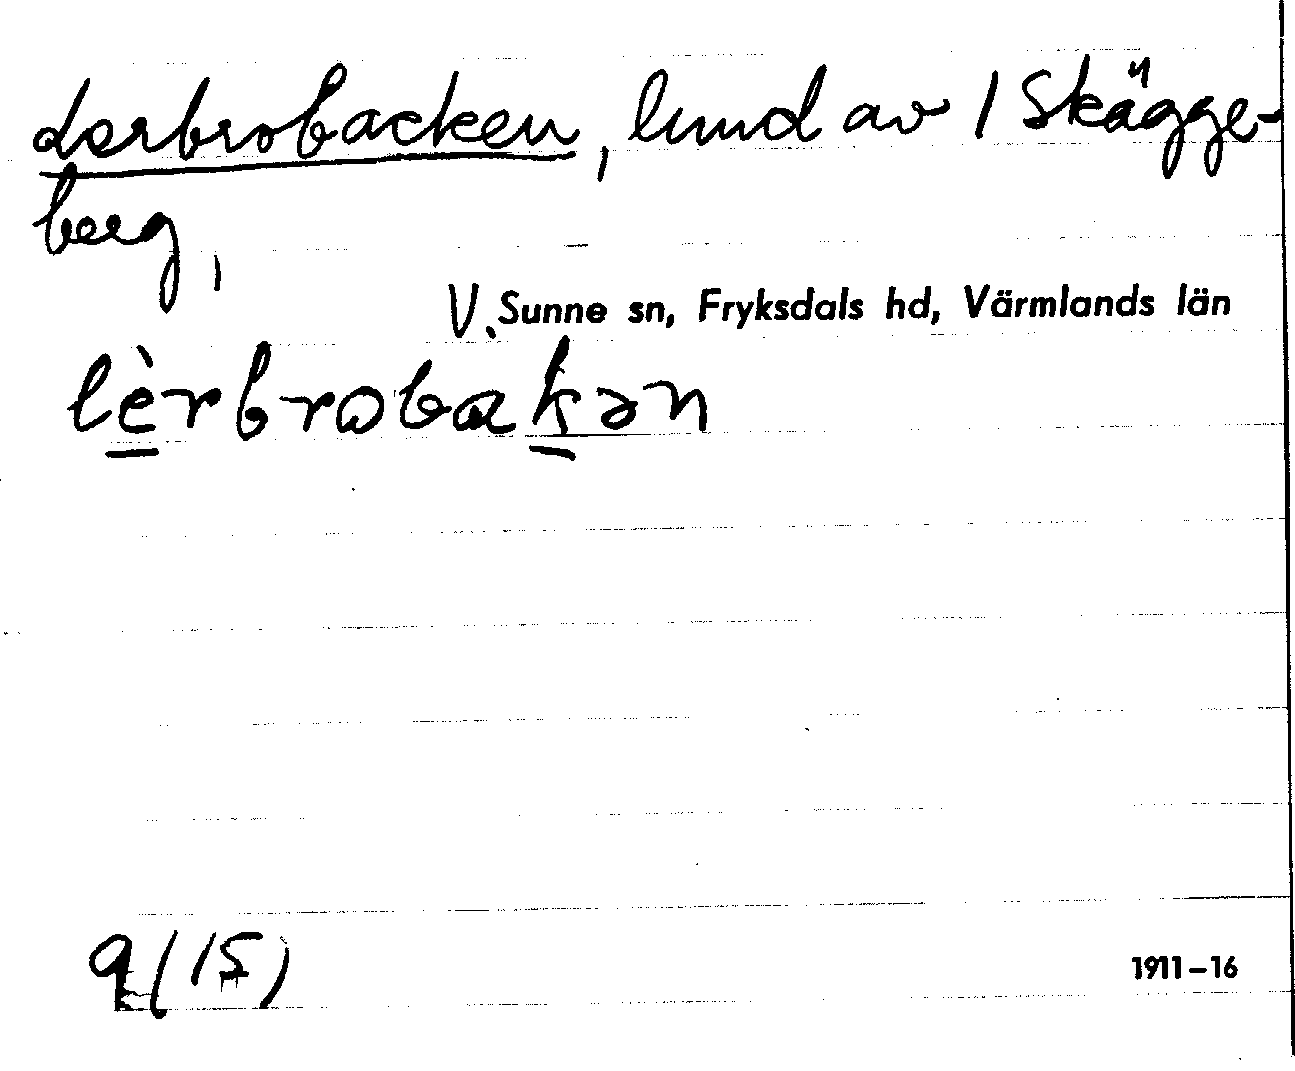 Lerbrobacken, lund av 1 Skägge-
berg,
V. Sunne sn, Fryksdals hd, Värmlands län
lèrbrobakən
9 (15)
1911-16